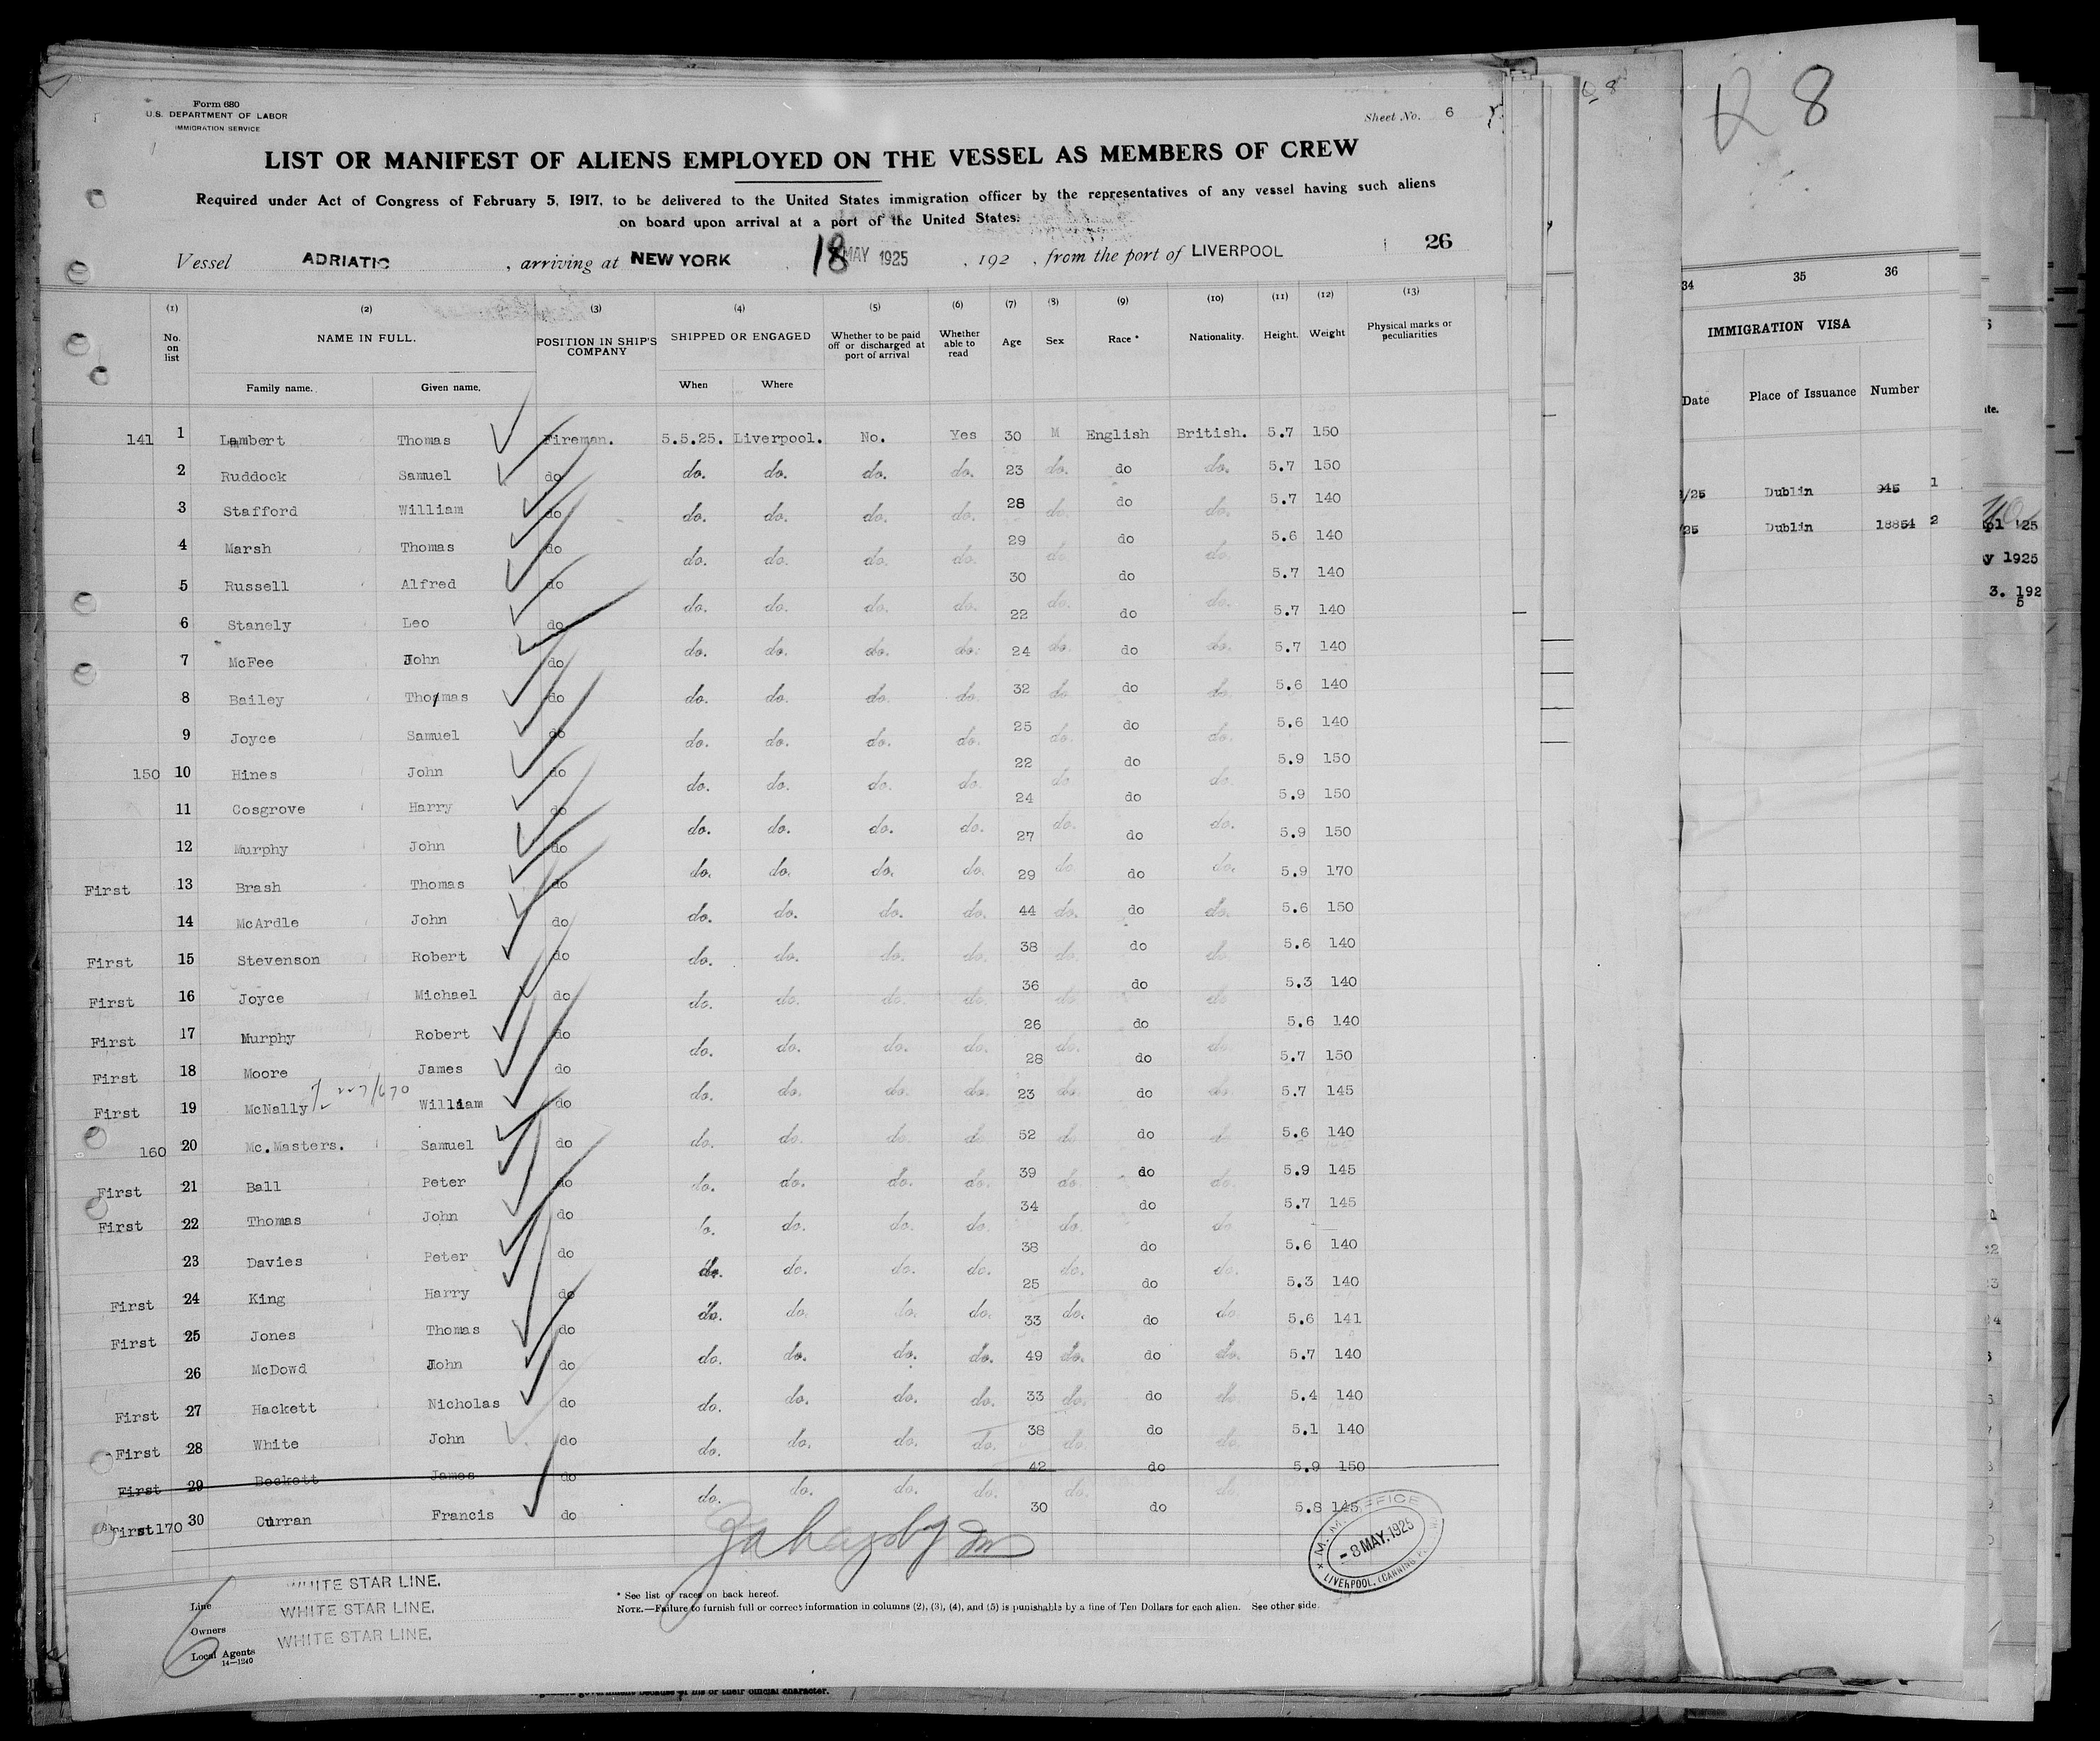 Form 680
U.S. DEPARTMENT OF LABOR
IMMIGRATION SERVICE
Sheet No. 6
LIST OR MANIFEST OF ALIENS EMPLOYED ON THE VESSEL AS MEMBERS OF CREW
Required under Act of Congress of February 5, 1917, to be delivered to the United States immigration officer by the representatives of any vessel having such aliens
on board upon arrival at a port of the United States.
Vessel ADRIATIC , arriving at NEW YORK 18 MAY 1925 , 192 , from the port of LIVERPOOL 26
(1) (2) (3) (4) (5) (6) (7) (8) (9) (10) (11) (12) (13)
No. on list NAME IN FULL. POSITION IN SHIP'S COMPANY SHIPPED OR ENGAGED Whether to be paid off or discharged at port of arrival Whether able to read Age Sex Race * Nationality. Height. Weight Physical marks or peculiarities
Family name. Given name. When Where
141 1 Lambert Thomas Fireman. 5.5.25. Liverpool. No. Yes 30 M English British. 5.7 150
2 Ruddock Samuel do do. do. do. do. 23 do. do do. 5.7 150
3 Stafford William do do. do. do. do. 28 do. do do. 5.7 140
4 Marsh Thomas do do. do. do. do. 29 do. do do. 5.6 140
5 Russell Alfred do do. do. do. do. 30 do. do do. 5.7 140
6 Stanely Leo do do. do. do. do. 22 do. do do. 5.7 140
7 McFee John do do. do. do. do. 24 do. do do. 5.7 140
8 Bailey Thomas do do. do. do. do. 32 do. do do. 5.6 140
9 Joyce Samuel do do. do. do. do. 25 do. do do. 5.6 140
150 10 Hines John do do. do. do. do. 22 do. do do. 5.9 150
11 Cosgrove Harry do do. do. do. do. 24 do. do do. 5.9 150
12 Murphy John do do. do. do. do. 27 do. do do. 5.9 150
First 13 Brash Thomas do do. do. do. do. 29 do. do do. 5.9 170
14 McArdle John do do. do. do. do. 44 do. do do. 5.6 150
First 15 Stevenson Robert do do. do. do. do. 38 do. do do. 5.6 140
First 16 Joyce Michael do do. do. do. do. 36 do. do do. 5.3 140
First 17 Murphy Robert do do. do. do. do. 26 do. do do. 5.6 140
First 18 Moore James do 28 do 5.7 150
First 19 McNally William do do. do. do. do. 23 do. do do. 5.7 145
160 20 Mc.Masters. Samuel do do. do. do. do. 52 do. do do. 5.6 140
First 21 Ball Peter do do. do. do. do. 39 do. do do. 5.9 145
First 22 Thomas John do do. do. do. do. 34 do. do do. 5.7 145
23 Davies Peter do do. do. do. do. 38 do. do do. 5.6 140
First 24 King Harry do do. do. do. do. 25 do. do do. 5.3 140
First 25 Jones Thomas do do. do. do. do. 33 do. do do. 5.6 141
26 McDowd John do do. do. do. do. 49 do. do do. 5.7 140
First 27 Hackett Nicholas do do. do. do. do. 33 do. do do. 5.4 140
First 28 White John do do. do. do. do. 38 do. do do. 5.1 140
First 29 Beckett James do do. do. do. do. 42 do. do do. 5.9 150
First 170 30 Curran Francis do 30 do 5.8 145
M.M. OFFICE
-8 MAY.1925
LIVERPOOL. (CANNING
Line WHITE STAR LINE.
Owners WHITE STAR LINE.
Local Agents WHITE STAR LINE.
14—1240
* See list of races on back hereof.
NOTE.—Failure to furnish full or correct information in columns (2), (3), (4), and (5) is punishable by a fine of Ten Dollars for each alien. See other side.
8
34 35 36
IMMIGRATION VISA
Date Place of Issuance Number
/25 Dublin 945 1
/25 Dublin 18854 2
25
1925
3. 192
5